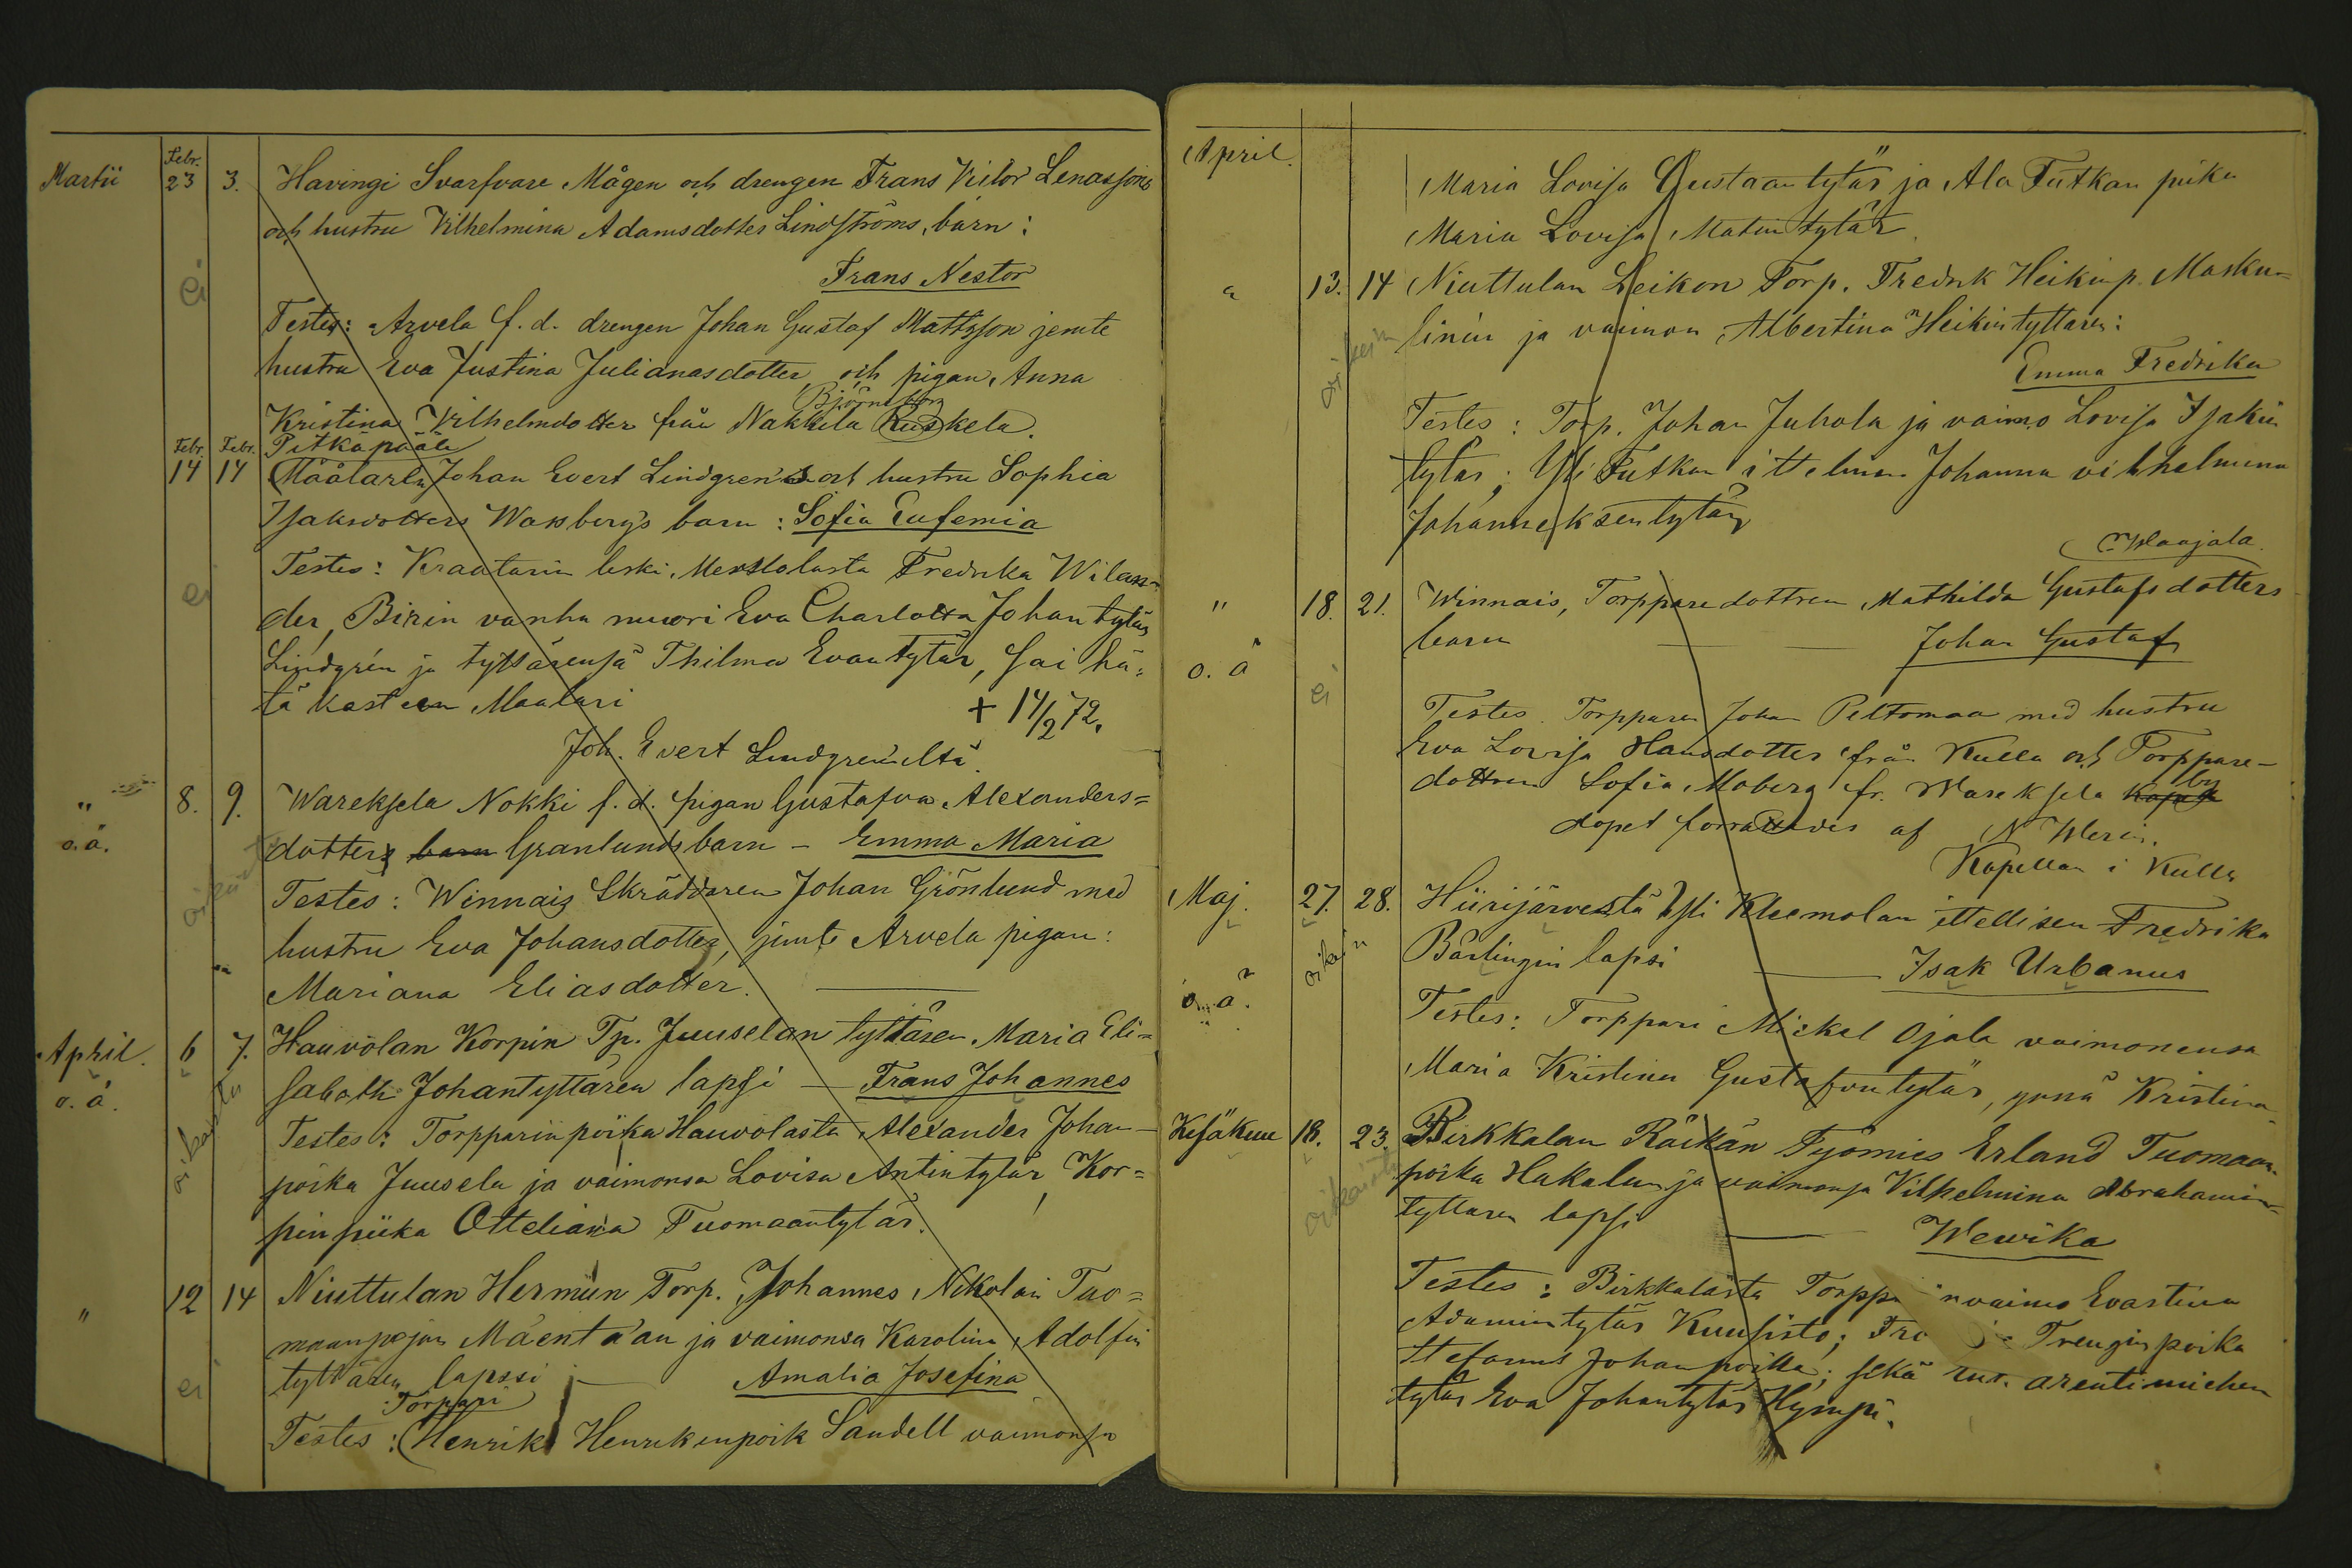 Martii Febr. 23 3. Havingi Svarfvare Mågen och drengen Frans Victor Lenasson's
och hustru Vilhelmina Adamsdotter Lindströms, barn:
ei Frans Nestor
Testes: Arvela f. d. drengen Johan Gustaf Mattsson jemte
hustru Eva Justina Julianasdotter, och pigan, Anna
Björneborg
Kristina Vilhelmdotter från Nakkila Ruskela.
Pitkäpäälä
Febr. 14 Febr. 14 Måålarln Johan Evert Lindgren's och hustru Sophia
Isaksdotters Waxberg's barn: Sofia Eufemia
Testes: Kraatarin leski, Merstolasta Fredrika Wilan-
ei
der, Birin vanha muori Eva Charlotta Johantytär
Lindgrén ja tyttärensä Thilma Evantytär, sai hä-
tä kasteen Maalari + 14/2 72.
Joh. Evert Lindgren'iltä.
" o.a. 8. 9. Wareksela Nokki f. d. pigan Gustafva Alexanders=
dotters barn Granlunds barn - Emma Maria
Testes: Winnais Skräddaren Johan Grönlund med
hustru Eva Johansdotter, jemte Arvela pigan:
Mariana Eliasdotter.
April. o. ä. 6 7. Hauvolan Korpin Tp. Juuselan tyttären Maria Eli=
sabeth Johantyttären lapsi — Frans Johannes
Testes: Torpparin poika Hauvolasta Alexander Johan-
poika Juusela ja vaimonsa Lovisa Antintytär, Kor=
pin piika Otteliana Tuomaantytär.
" 12 14 Niuttulan Hermun Torp. Johannes Nikolai Tuo=
maanpojan Mäentä'an ja vaimonsa Karolina Adolfin
ei tyttären lapssi — Amalia Josefina
Torppari
Testes: Henrik Henrikinpoik Sandell vaimonsa
April.
Maria Lovisa Gustaantytär ja Ala Tutkan piika
Maria Lovisa Matintytär
" 13. 14 Niuttulan Leikon Torp. Fredrik Heikinp. Masku=
linin ja vaimon Albertina Heikintyttären:
Emma Fredrika
Testes: Torp. Johan Juhola ja vaimo Lovisa Isakin
tytär; Yli Tutkan ittelinen Johanna vilhelmina
Johanneksentytär
Waajala.
" o. ä 18. 21. Winnais, Torpparedottren Mathilda Gustafsdotters
barn — — Johan Gustaf
ei
Testes. Torpparen Johan Peltomaa med hustru
Eva Lovisa Hansdotter från Kulla och Torppare-
by
dottren Sofia Moberg fr. Wareksela
dopet förrättades af N Wlerin.
Kapellan i Kulla
Maj. 27. 28. Hiirijärvestä Yli Kleemolan ittellisen Fredrika
oikein
Bärlingin lapsi — Isak Urbanus
o. a.
Testes: Torppari Mickel Ojala vaimonensa
Maria Kristina Gustafvintytär, ynnä Kristina
Kesäkuu 18. 23. Birkkalan Räikän Työmies Erland Tuomaan-
poika Hakalan ja vaimonsa Vilhelmina Abrahamin-
tyttären lapsi — Wewika
Testes: Birkkalasta Torpp invaimo Evastina
Adamintytär Kuusisto; Trengin poika
Stefanus Johanpoika; sekä rut. arentimiehen
tytär Eva Johantytär Kympi.